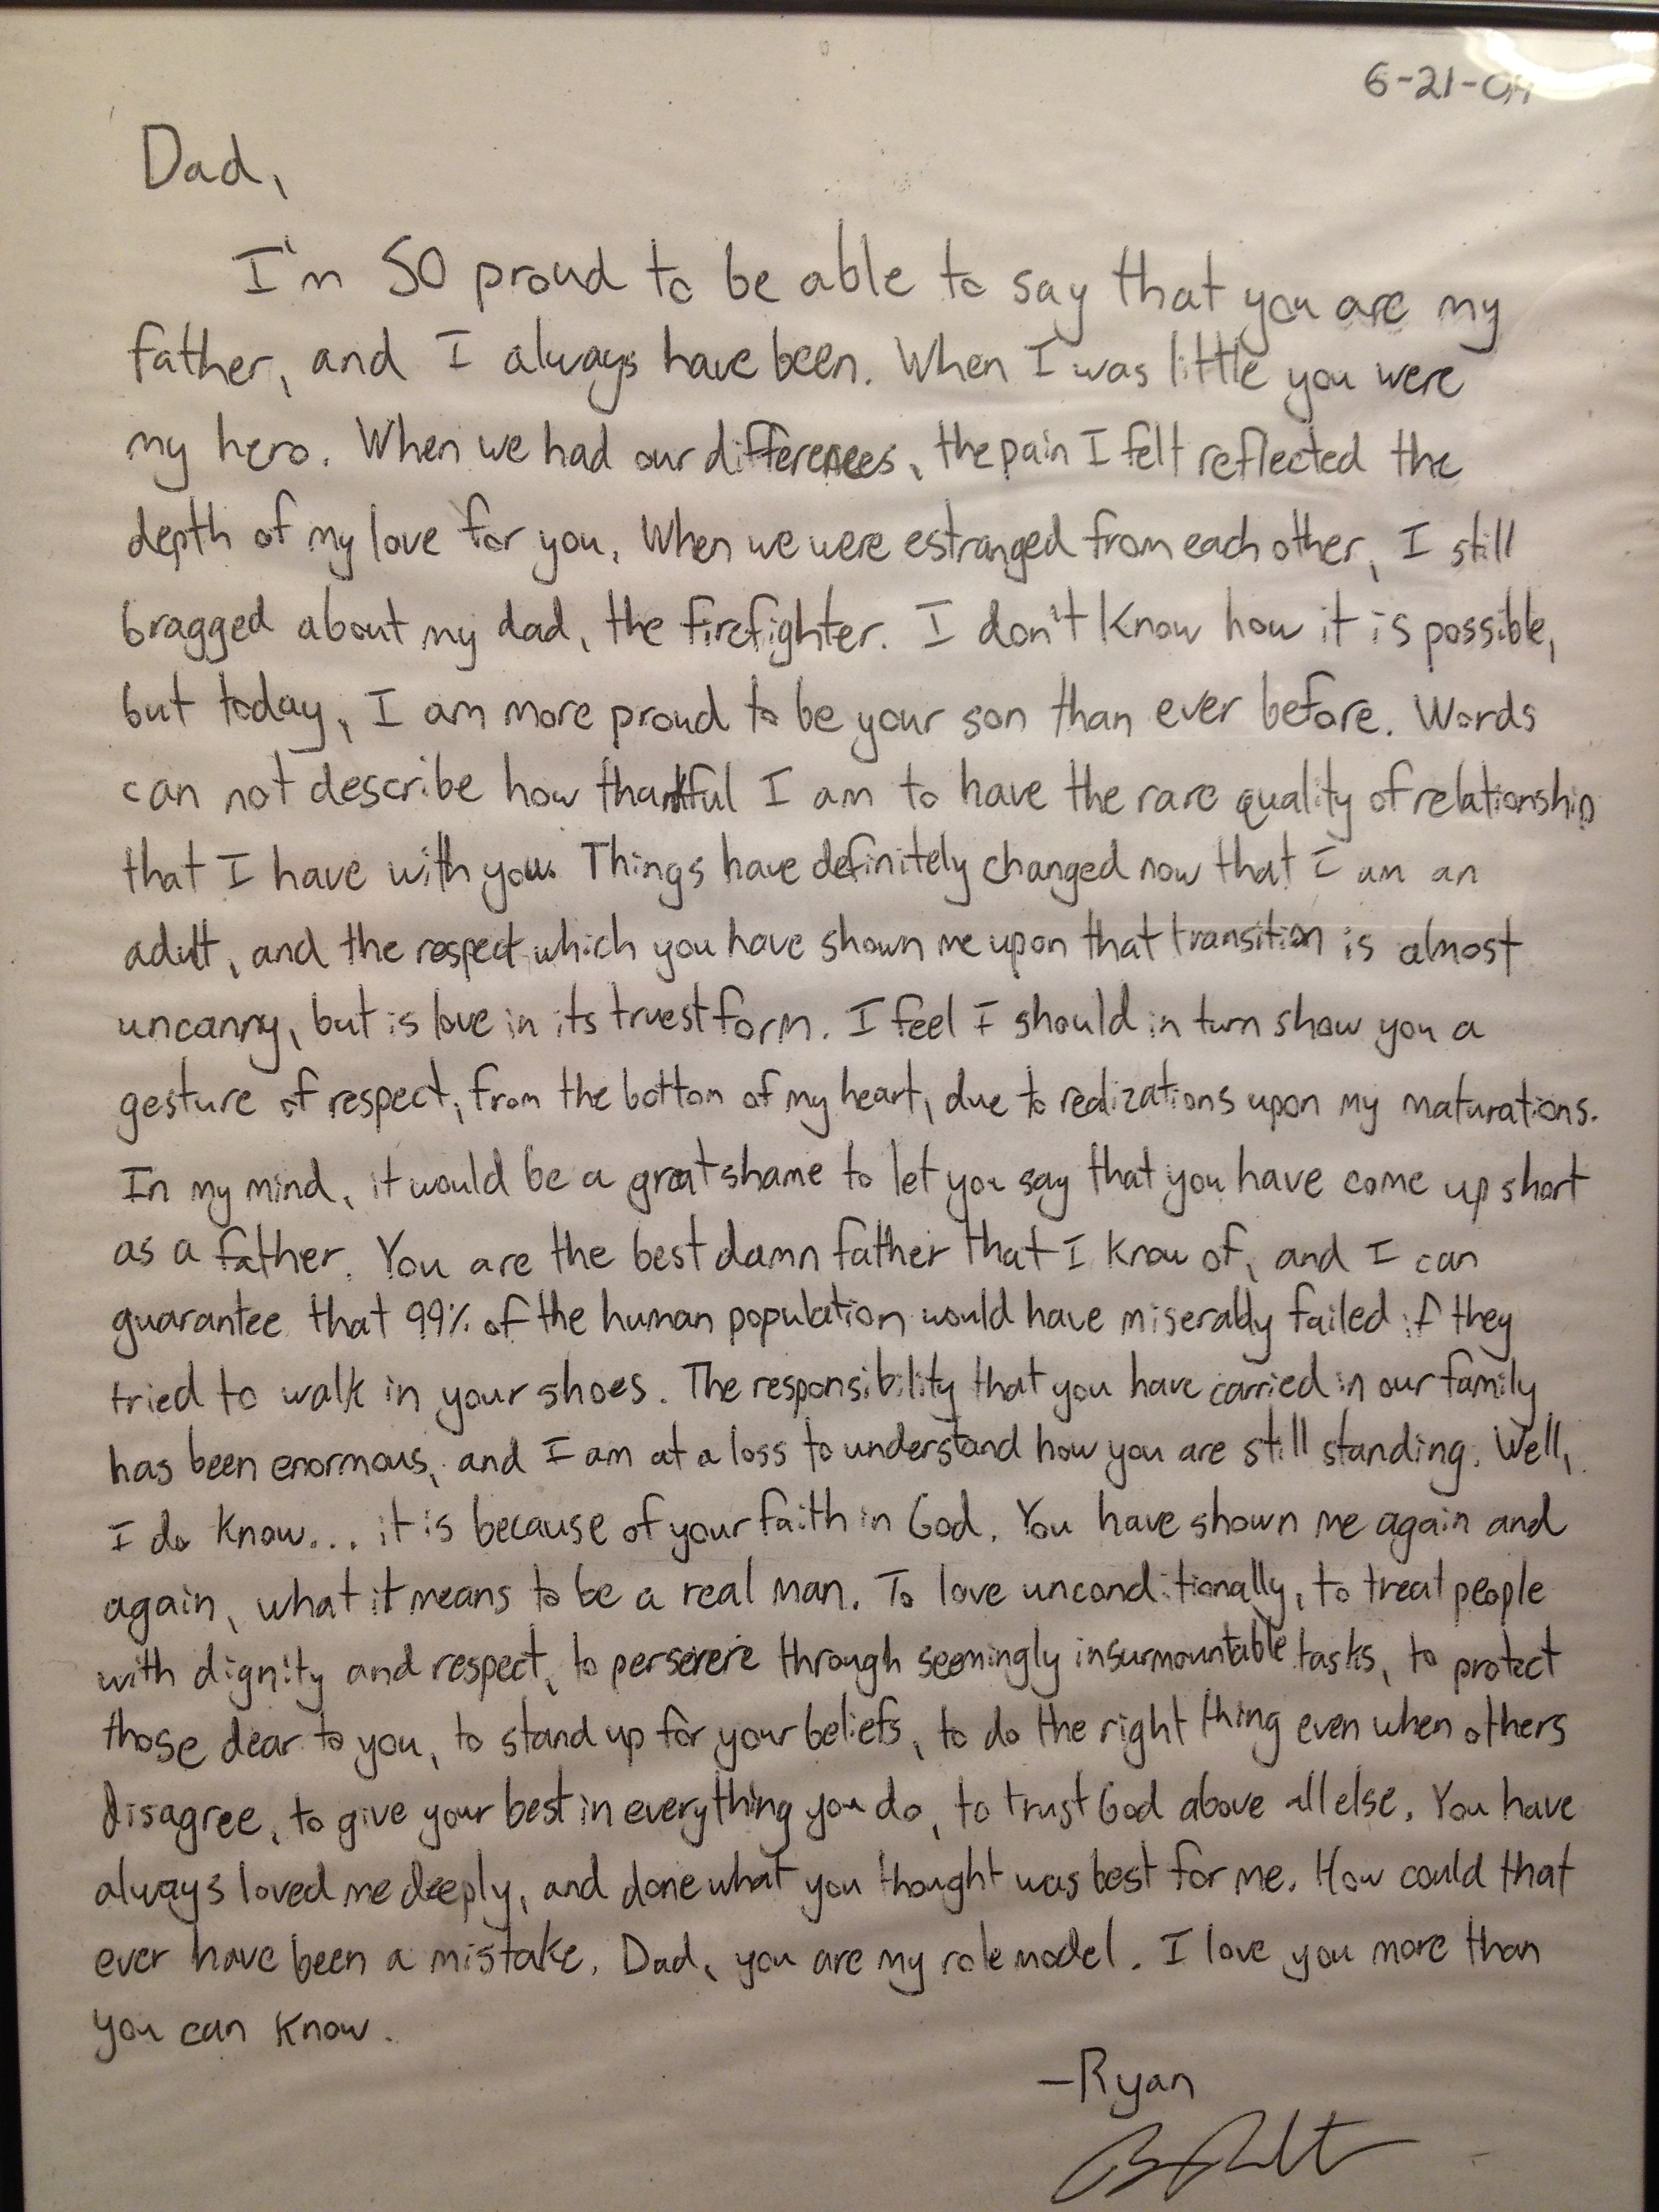 6-21-04
Dad,
I'm SO proud to be able to say that you are my
father, and I always have been. When I was little you were
my hero. When we had our differences, the pain I felt reflected the
depth of my love for you. When we were estranged from each other, I still
bragged about my dad, the firefighter. I don't know how it is possible,
but today, I am more proud to be your son than ever before. Words
can not describe how thankful I am to have the rare quality of relationship
that I have with you. Things have definitely changed now that I am an
adult, and the respect which you have shown me upon that transition is almost
uncanny, but is love in its truest form. I feel I should in turn show you a
gesture of respect, from the bottom of my heart, due to realizations upon my maturations.
In my mind, it would be a great shame to let you say that you have come up short
as a father. You are the best damn father that I know of, and I can
guarantee that 99% of the human population would have miserably failed if they
tried to walk in your shoes. The responsibility that you have carried in our family
has been enormous, and I am at a loss to understand how you are still standing. Well,
I do know... it is because of your faith in God. You have shown me again and
again, what it means to be a real man. To love unconditionally, to treat people
with dignity and respect, to persevere through seemingly insurmountable tasks, to protect
those dear to you, to stand up for your beliefs, to do the right thing even when others
disagree, to give your best in everything you do, to trust God above all else. You have
always loved me deeply, and done what you thought was best for me. How could that
ever have been a mistake. Dad, you are my role model. I love you more than
you can know.
-Ryan